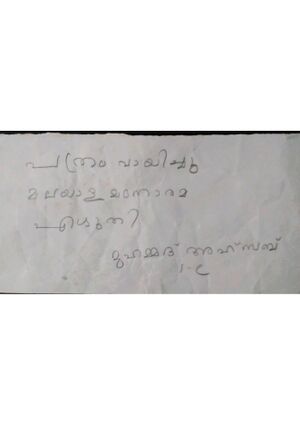 പത്രം വായിച്ചു
മലയാള മനോരമ
എഴുതി
മുഹമ്മദ് അഹ്സബ്
1-C